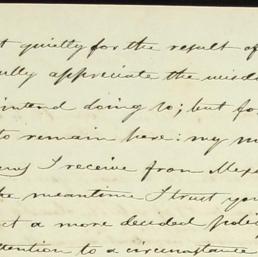 t quietly for the result of
ully appreciate the wisdo
intend doing so; but fo
to remain here: my m
ews I receive from Mexi
he meantime I trust you
ct a more decided polic
ttention to a circumstance